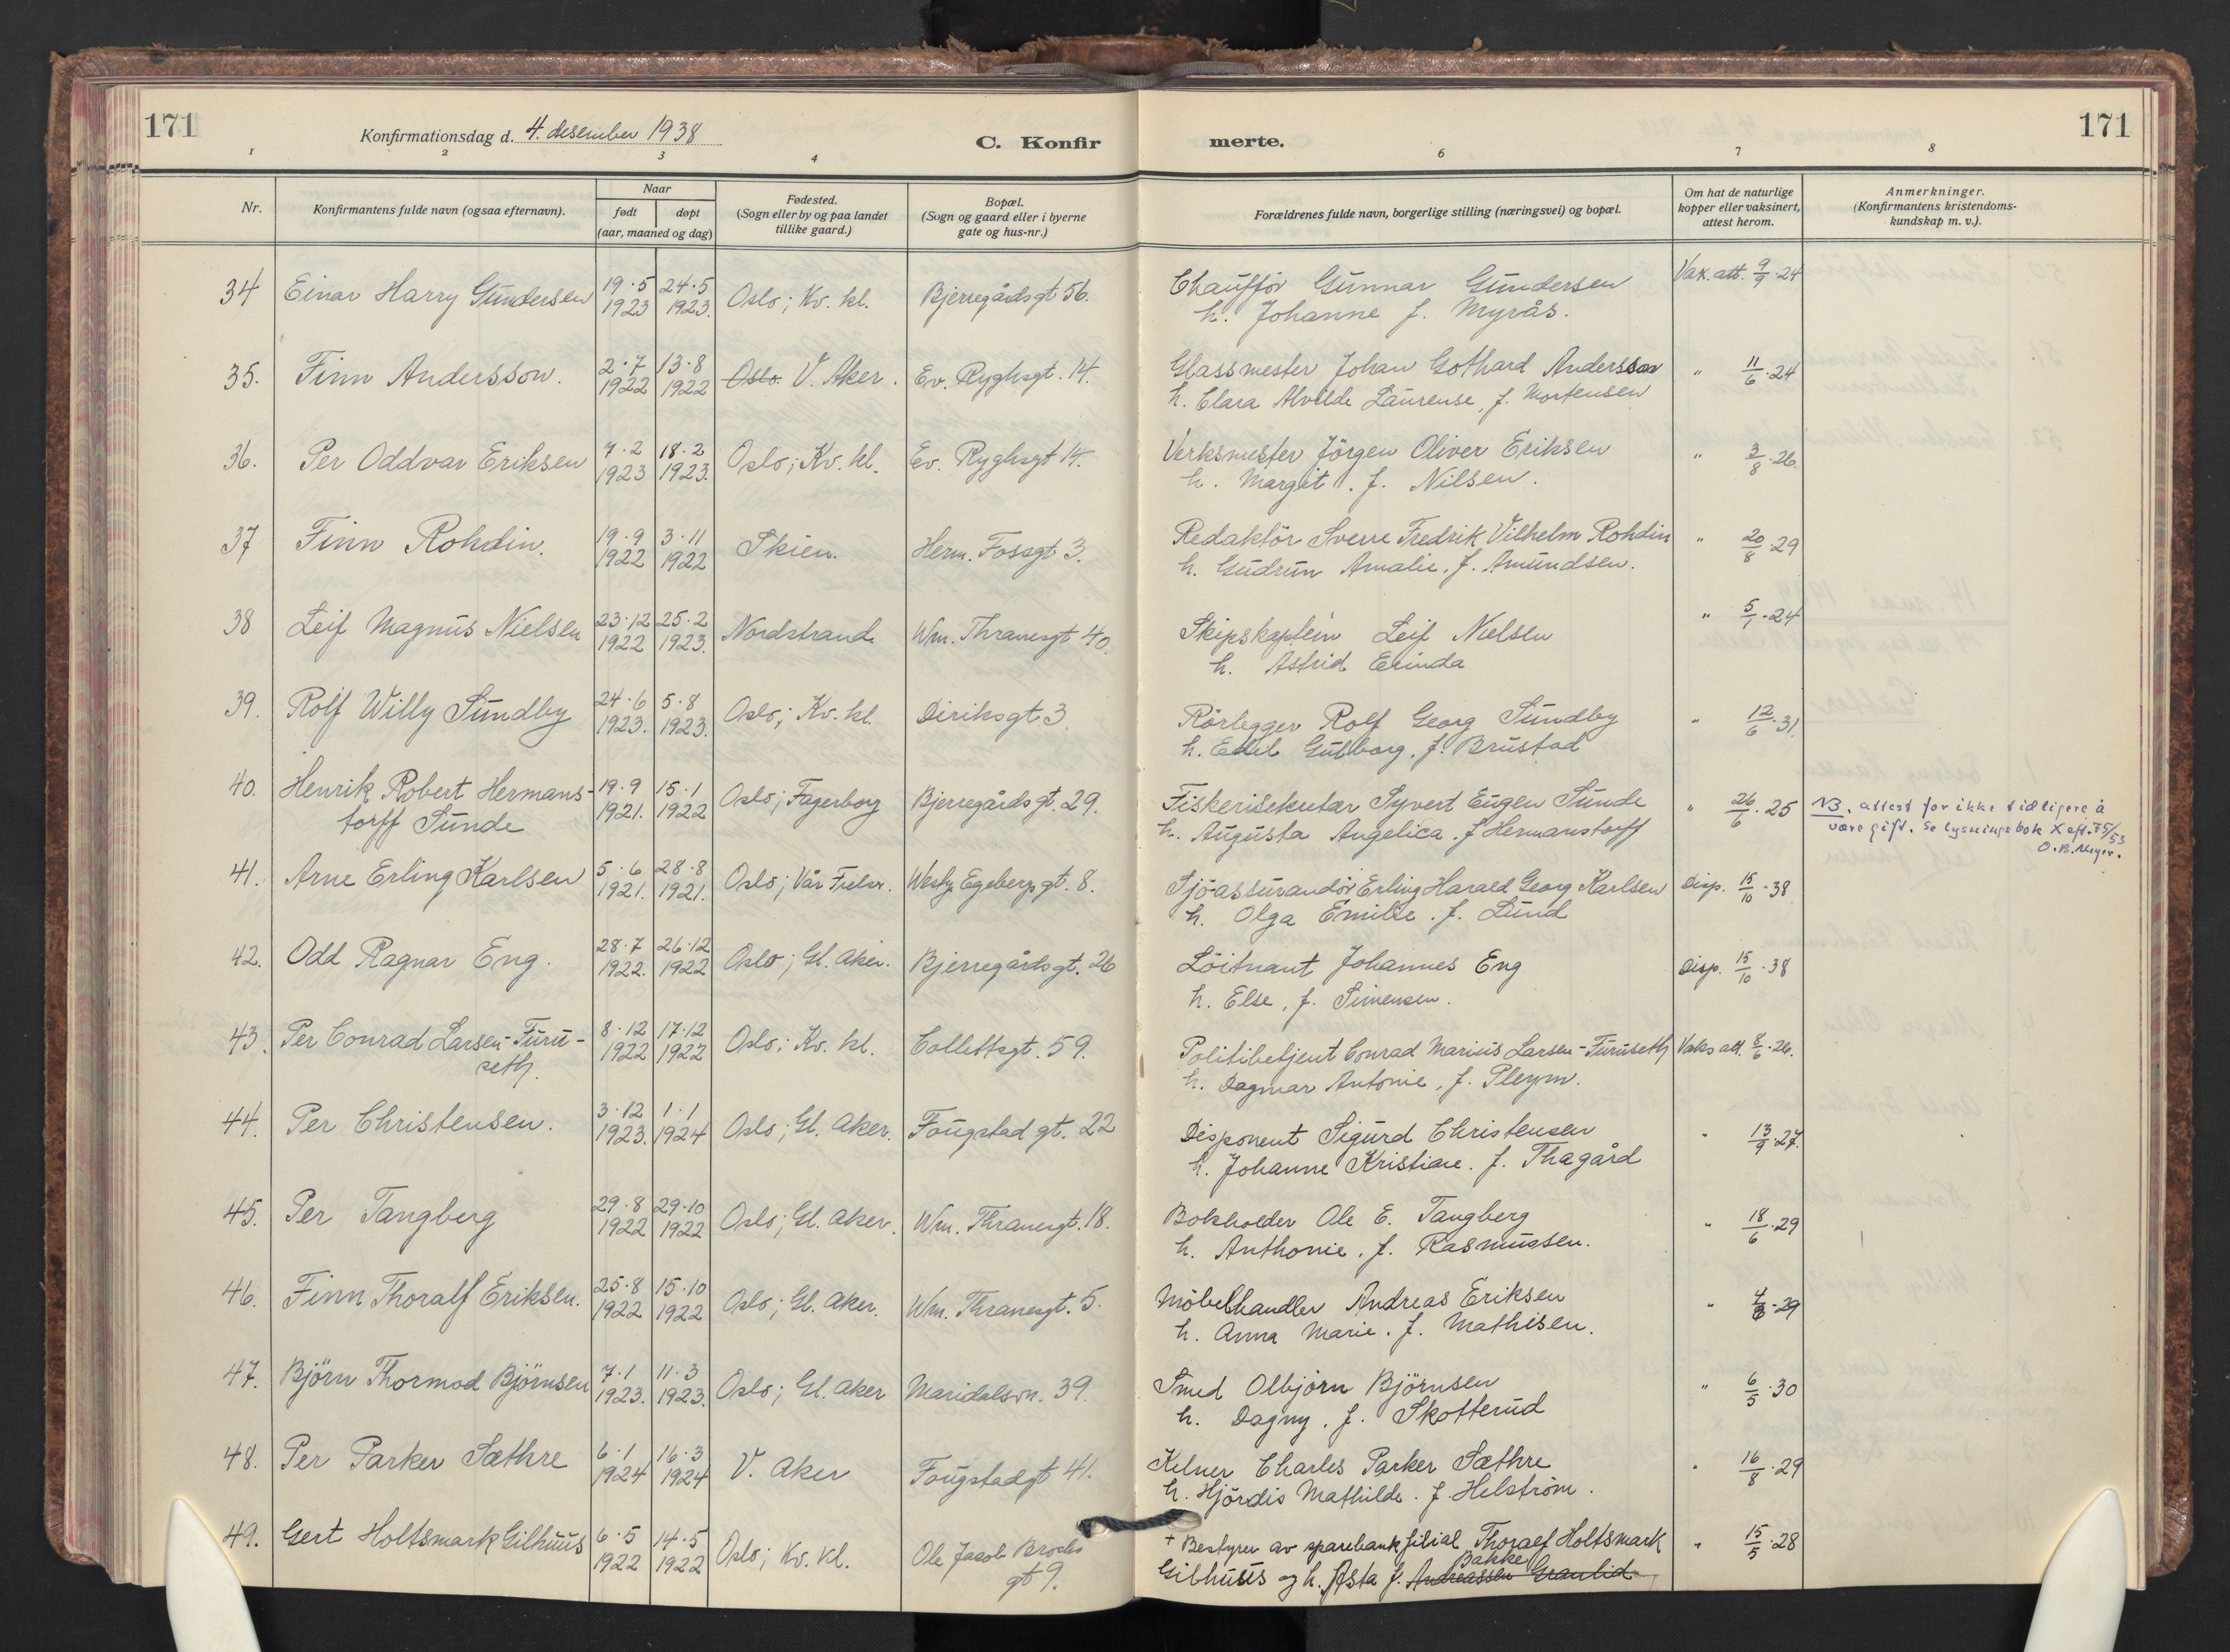 171
Konfirmationsdag d. 4. desember 1938
C. Konfir
merte.
171
1 2 3 4 6 7 8
Nr.
Konfirmantens fulde navn (ogsaa efternavn).
Naar
født døpt
(aar, maaned og dag)
Fødested.
(Sogn eller by og paa landet
tillike gaard.)
Bopæl.
(Sogn og gaard eller i byerne
gate og hus-nr.)
Forældrenes fulde navn, borgerlige stilling (næringsvei) og bopæl.
Om hat de naturlige
kopper eller vaksinert,
attest herom.
Anmerkninger.
(Konfirmantens kristendoms-
kundskap m. v.).
34 Einar Harry Gundersen 19.5 24.5 Oslo; Kv. kl. Bjerregårdsgt 56. Chaufför Gunnar Gundersen Vax. att. 9/9.24
1923 1923. h. Johanne f. Myrås.
35. Finn Andersson. 2.7 13.8 Oslo. V. Aker. Ev. Ryghsgt. 14. Glassmester Johan Gothard Andersson " 11/6.24
1922 1922 h. Clara Alvilde Laurense, f. Mortensen
36. Per Oddvar Eriksen 7.2 18.2 Oslo; Kv. kl. Ev. Ryghsgt 14. Verksmester Jörgen Oliver Eriksen " 3/8.26.
1923 1923. h. Margit. f. Nilsen.
37 Finn Rohdin. 19.9 3.11 Skien. Herm. Fossgt 3. Redaktör Sverre Fredrik Vilhelm Rohdin " 20/8.29
1922 1922 h. Gudrun Amalie. f. Amundsen.
38 Leif Magnus Nielsen 23.12 25.2 Nordstrand Wm. Thranesgt 40. Skipskaptein Leif Nielsen " 5/1.24
1922 1923. h. Astrid Erinda
39. Rolf Willy Sundby 24.6 5.8 Oslo; Kv. kl. Diriksgt 3 Rörlegger Rolf Georg Sundby " 12/6.31.
1923. 1923. h. Edel Gulborg. f. Brustad
40. Henrik Robert Hermans- 19.9 15.1 Oslo; Fagerborg Bjerregårdsgt. 29. Fiskerisekretær Syvert Eugen Sunde " 26/6.25 NB. attest for ikke tidligere å
torff Sunde 1921. 1922 h. Augusta Angelica. f Hermanstorff være gift. Se lysningsbok X eft. 75/53
O.B. Meyer.
41. Arne Erling Karlsen 5.6 28.8 Oslo; Vår Frelser. Westye Egebergsgt. 8. Sjöassurandör Erling Harald Georg Karlsen Disp. 15/10.38
1921. 1921. h. Olga Emilie. f. Lund
42. Odd Ragnar Eng. 28.7 26.12 Oslo; Gl. Aker. Bjerregårdsgt. 26 Löitnant Johannes Eng Disp. 15/10.38
1922. 1922 h. Else, f. Simensen.
43. Per Conrad Larsen-Furu- 8.12 17.12 Oslo; Kv. kl. Collettsgt. 59. Politibetjent Conrad Marius Larsen-Furuseth Vaks att. 8/6.26.
seth. 1922 1922 h. Dagmar Antonie, f. Pleym.
44. Per Christensen. 3.12 1.1 Oslo; Gl. Aker. Fougstad gt. 22 Disponent Sigurd Christensen " 13/9.27.
1923. 1924 h. Johanne Kristiane. f. Thagård
45. Per Tangberg 29.8 29.10 Oslo; Gl. Aker. Wm. Thranesgt. 18. Bokholder Ole E. Tangberg " 18/6.29
1922 1922 h. Anthonie. f. Rasmussen.
46. Finn Thoralf Eriksen. 25.8 15.10 Oslo; Gl. Aker. Wm. Thranesgt. 5. Möbelhandler Andreas Eriksen " 4/6.29
1922 1922 h. Anna Marie. f. Mathisen.
47. Björn Thormod Björnsen 7.1 11.3 Oslo; Gl. Aker Maridalsvn. 39. Smed Olbjörn Björnsen " 6/5.30
1923. 1923. h. Dagny. f. Skotterud
48. Per Parker Sæthre 6.1 16.3 V. Aker Fougstadgt 41. Kelner Charles Parker Sæthre " 16/8.29
1924 1924 h. Hjördis Mathilde. f. Helström.
49. Gert Holtsmark Gilhuus 6.5 14.5 Oslo; Kv. kl. Ole Jacob Brochs + Bestyrer av sparebankfilial Thoralf Holtsmark " 15/5.28
1922 1922 gt 9. Gilhuus og h. Asta f. Bakke Andreassen Granlid